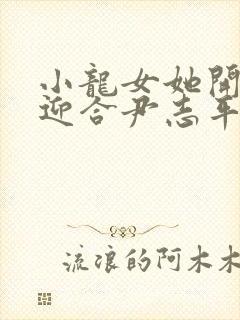 小龍女她開
迎合尹志平
流浪的阿木木